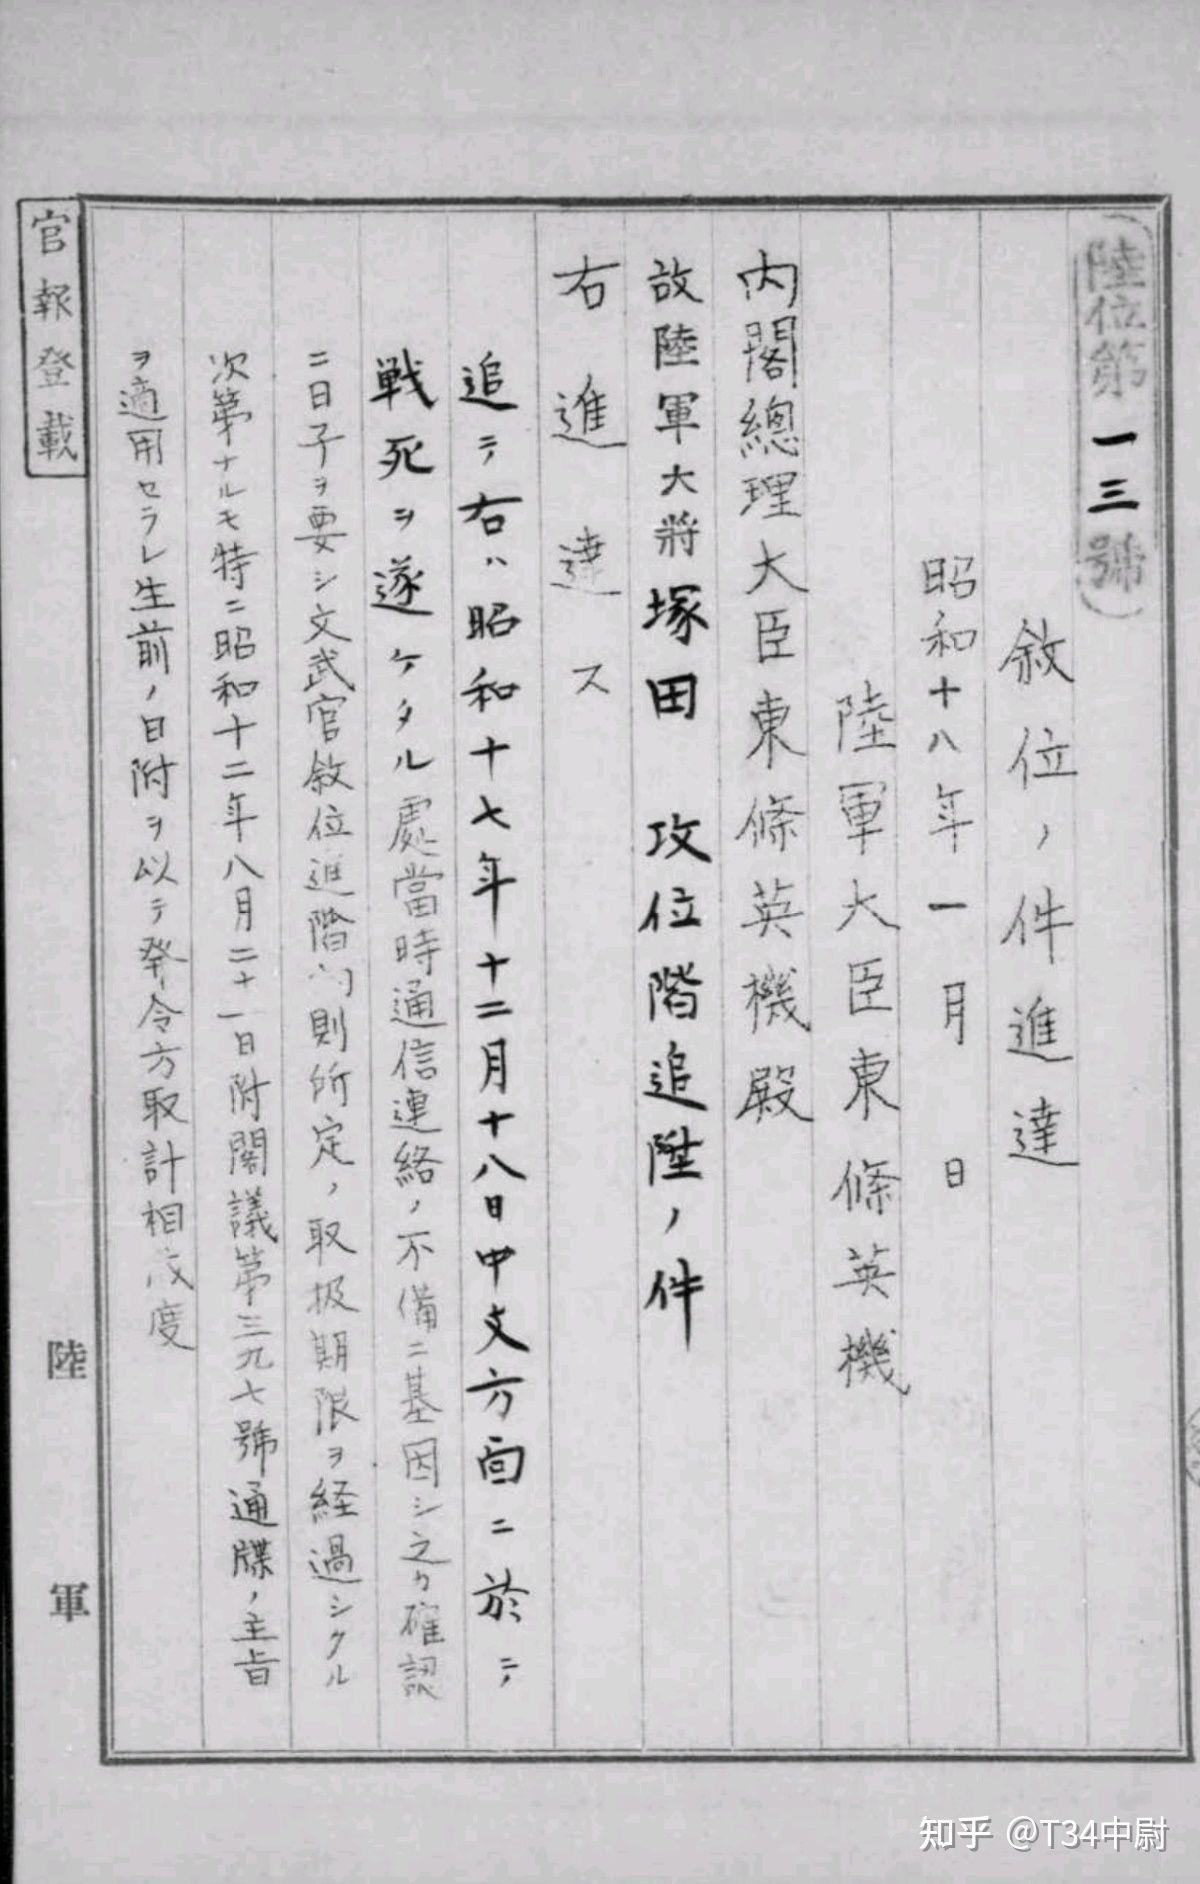 (陸位第一三號)
敘位ノ件進達
昭和十八年一月　日
陸軍大臣東條英機
內閣總理大臣東條英機殿
故陸軍大將塚田　攻位階追陞ノ件
右進達ス
追テ右ハ昭和十七年十二月十八日中支方面ニ於テ
戦死ヲ遂ケタル處當時通信連絡ノ不備ニ基因シ之カ確認
ニ日子ヲ要シ文武官敘位進階內則所定ノ取扱期限ヲ経過シタル
次第ナルモ特ニ昭和十二年八月二十一日附閣議第三九七號通牒ノ主旨
ヲ適用セラレ生前ノ日附ヲ以テ発令方取計相成度
官報登載
陸軍
知乎 @T34中尉